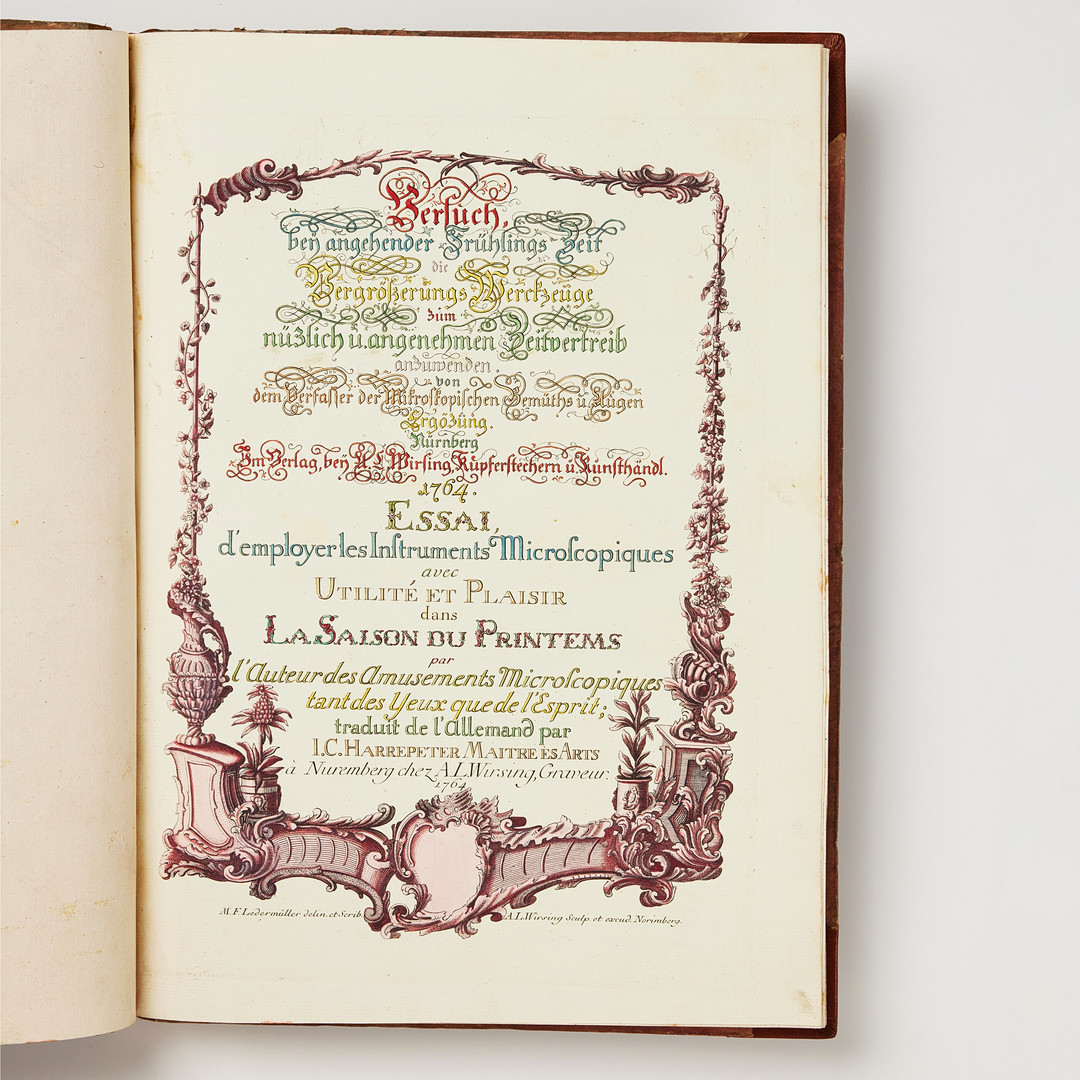 Versuch,
beÿ angehender Frühlings-Zeit
die
Vergrößerungs Werckzeuge
zum
nüzlich ù. angenehmen Zeitvertreib
anzuwenden.
von
dem Verfasser der Mikroskopischen Gemüths ù Augen
Ergözung.
Nürnberg
Im Verlag, beÿ A L Wirsing, Kupferstechern ù. Kunsthändl.
1764.
ESSAI,
d'employer les Inſtruments Microſcopiques
avec
UTILITÉ ET PLAISIR
dans
LA SAISON DU PRINTEMS
par
l'Auteur des Amusements Microſcopiques
tant des Yeux que de l'Esprit;
traduit de l'Allemand par
I. C. HARREPETER MAITRE ES ARTS
à Nuremberg chez A. L. Wirsing, Graveur.
1764
M. F. Ledermüller delin. et Scrib.
A. L. Wirsing Sculp. et excud. Norimberg.